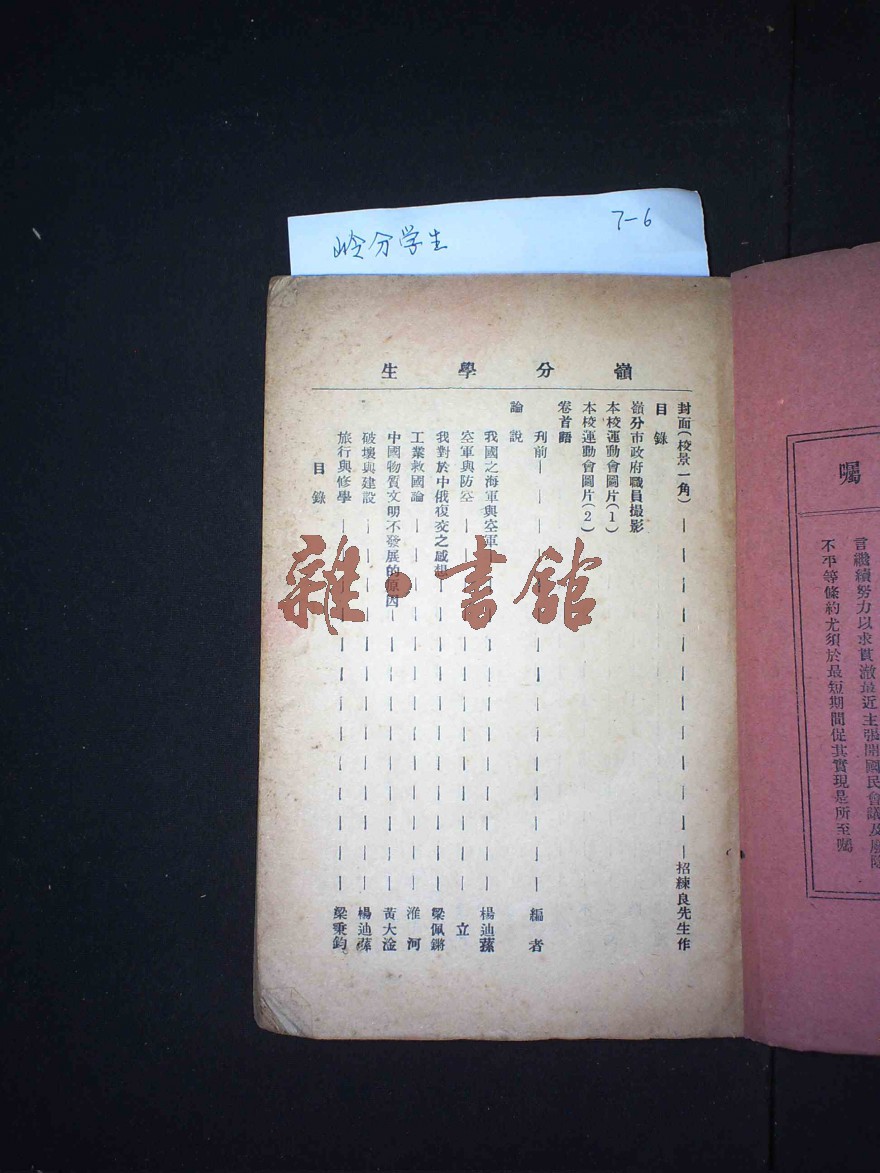 岭分学生
7-6
嶺分學生
封面(校景一角)——————————招練良先生作
目錄
嶺分市政府職員撮影
本校運動會圖片(1)
本校運動會圖片(2)
卷首語
刋前——————————編者
論說
我國之海軍與空軍——————————楊迪蓀
空軍與防空——————————立
我對於中俄復交之感想——————————梁佩鏘
工業救國論——————————淮河
中國物質文明不發展的原因——————————黃大淦
破壞與建設——————————楊迪蓀
旅行與修學——————————梁秉鈞
目錄
雜·書館
囑
言繼續努力以求貫澈最近主張開國民會議及廢除
不平等條約尤須於最短期間促其實現是所至囑